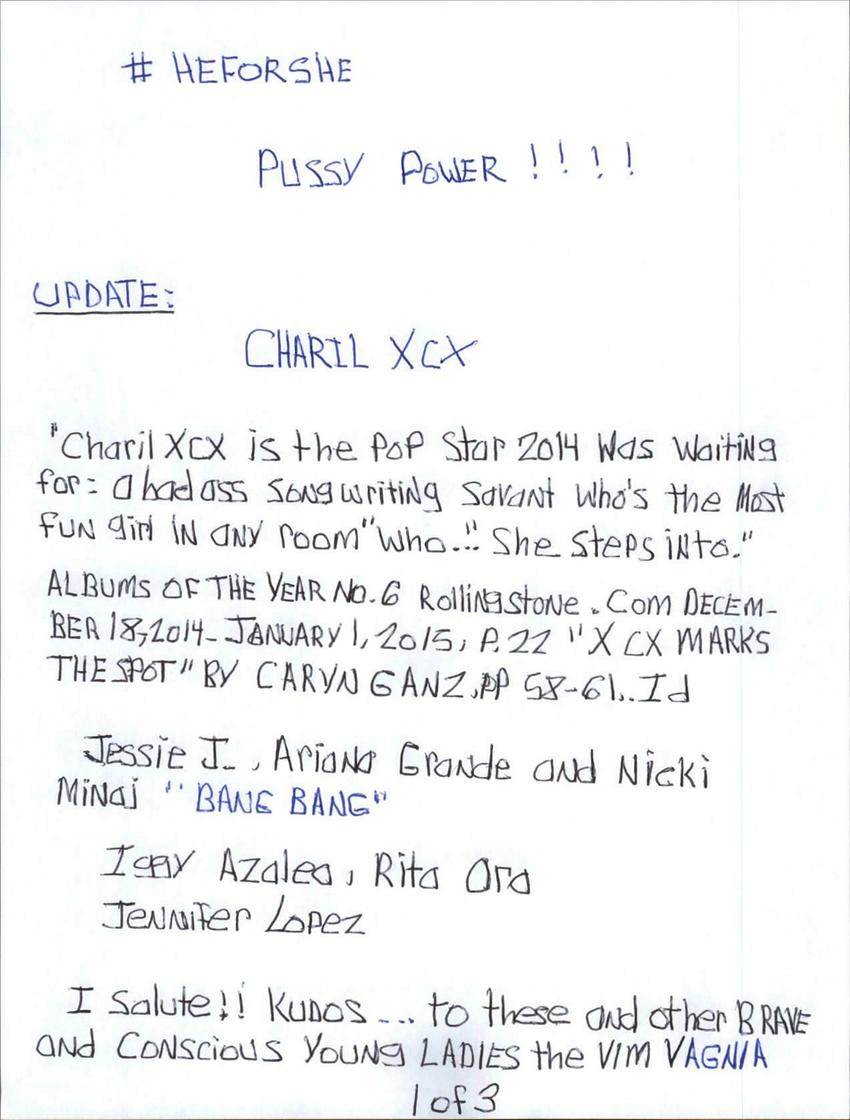 # HEFORSHE
PUSSY POWER !!!!
UPDATE:
CHARIL XCX
"Charil XCX is the POP Star 2014 Was Waiting
for: a badass songwriting savant who's the Most
fun girl in any room" "who..." She steps into."
ALBUMS OF THE YEAR No. 6 RollingStone.Com DECEM-
BER 18, 2014-JANUARY 1, 2015, P. 22 "X CX MARKS
THE SPOT" BY CARYN GANZ, PP 58-61.. Id
Jessie J., Ariana Grande and Nicki
Minaj "BANG BANG"
Iggy Azalea, Rita Ora
Jennifer Lopez
I Salute!! KUDOS ... to these and other BRAVE
and CONSCIOUS YOUNG LADIES the VIM VAGNIA
1 of 3